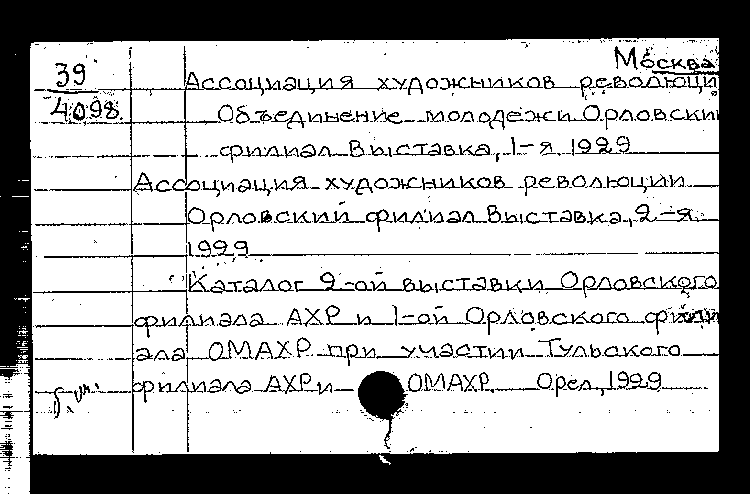 Москва
39
4098
Ассоциация художников революци
Объединение молодежи Орловский
филиал Выставка, 1-я 1929
Ассоциация художников революции
Орловский филиал Выставка, 2-я
1929
Каталог 2-ой выставки Орловского
филиала АХР и 1-ой Орловского фили
ала ОМАХР при участии Тульского
филиала АХР и ОМАХР. Орел, 1929